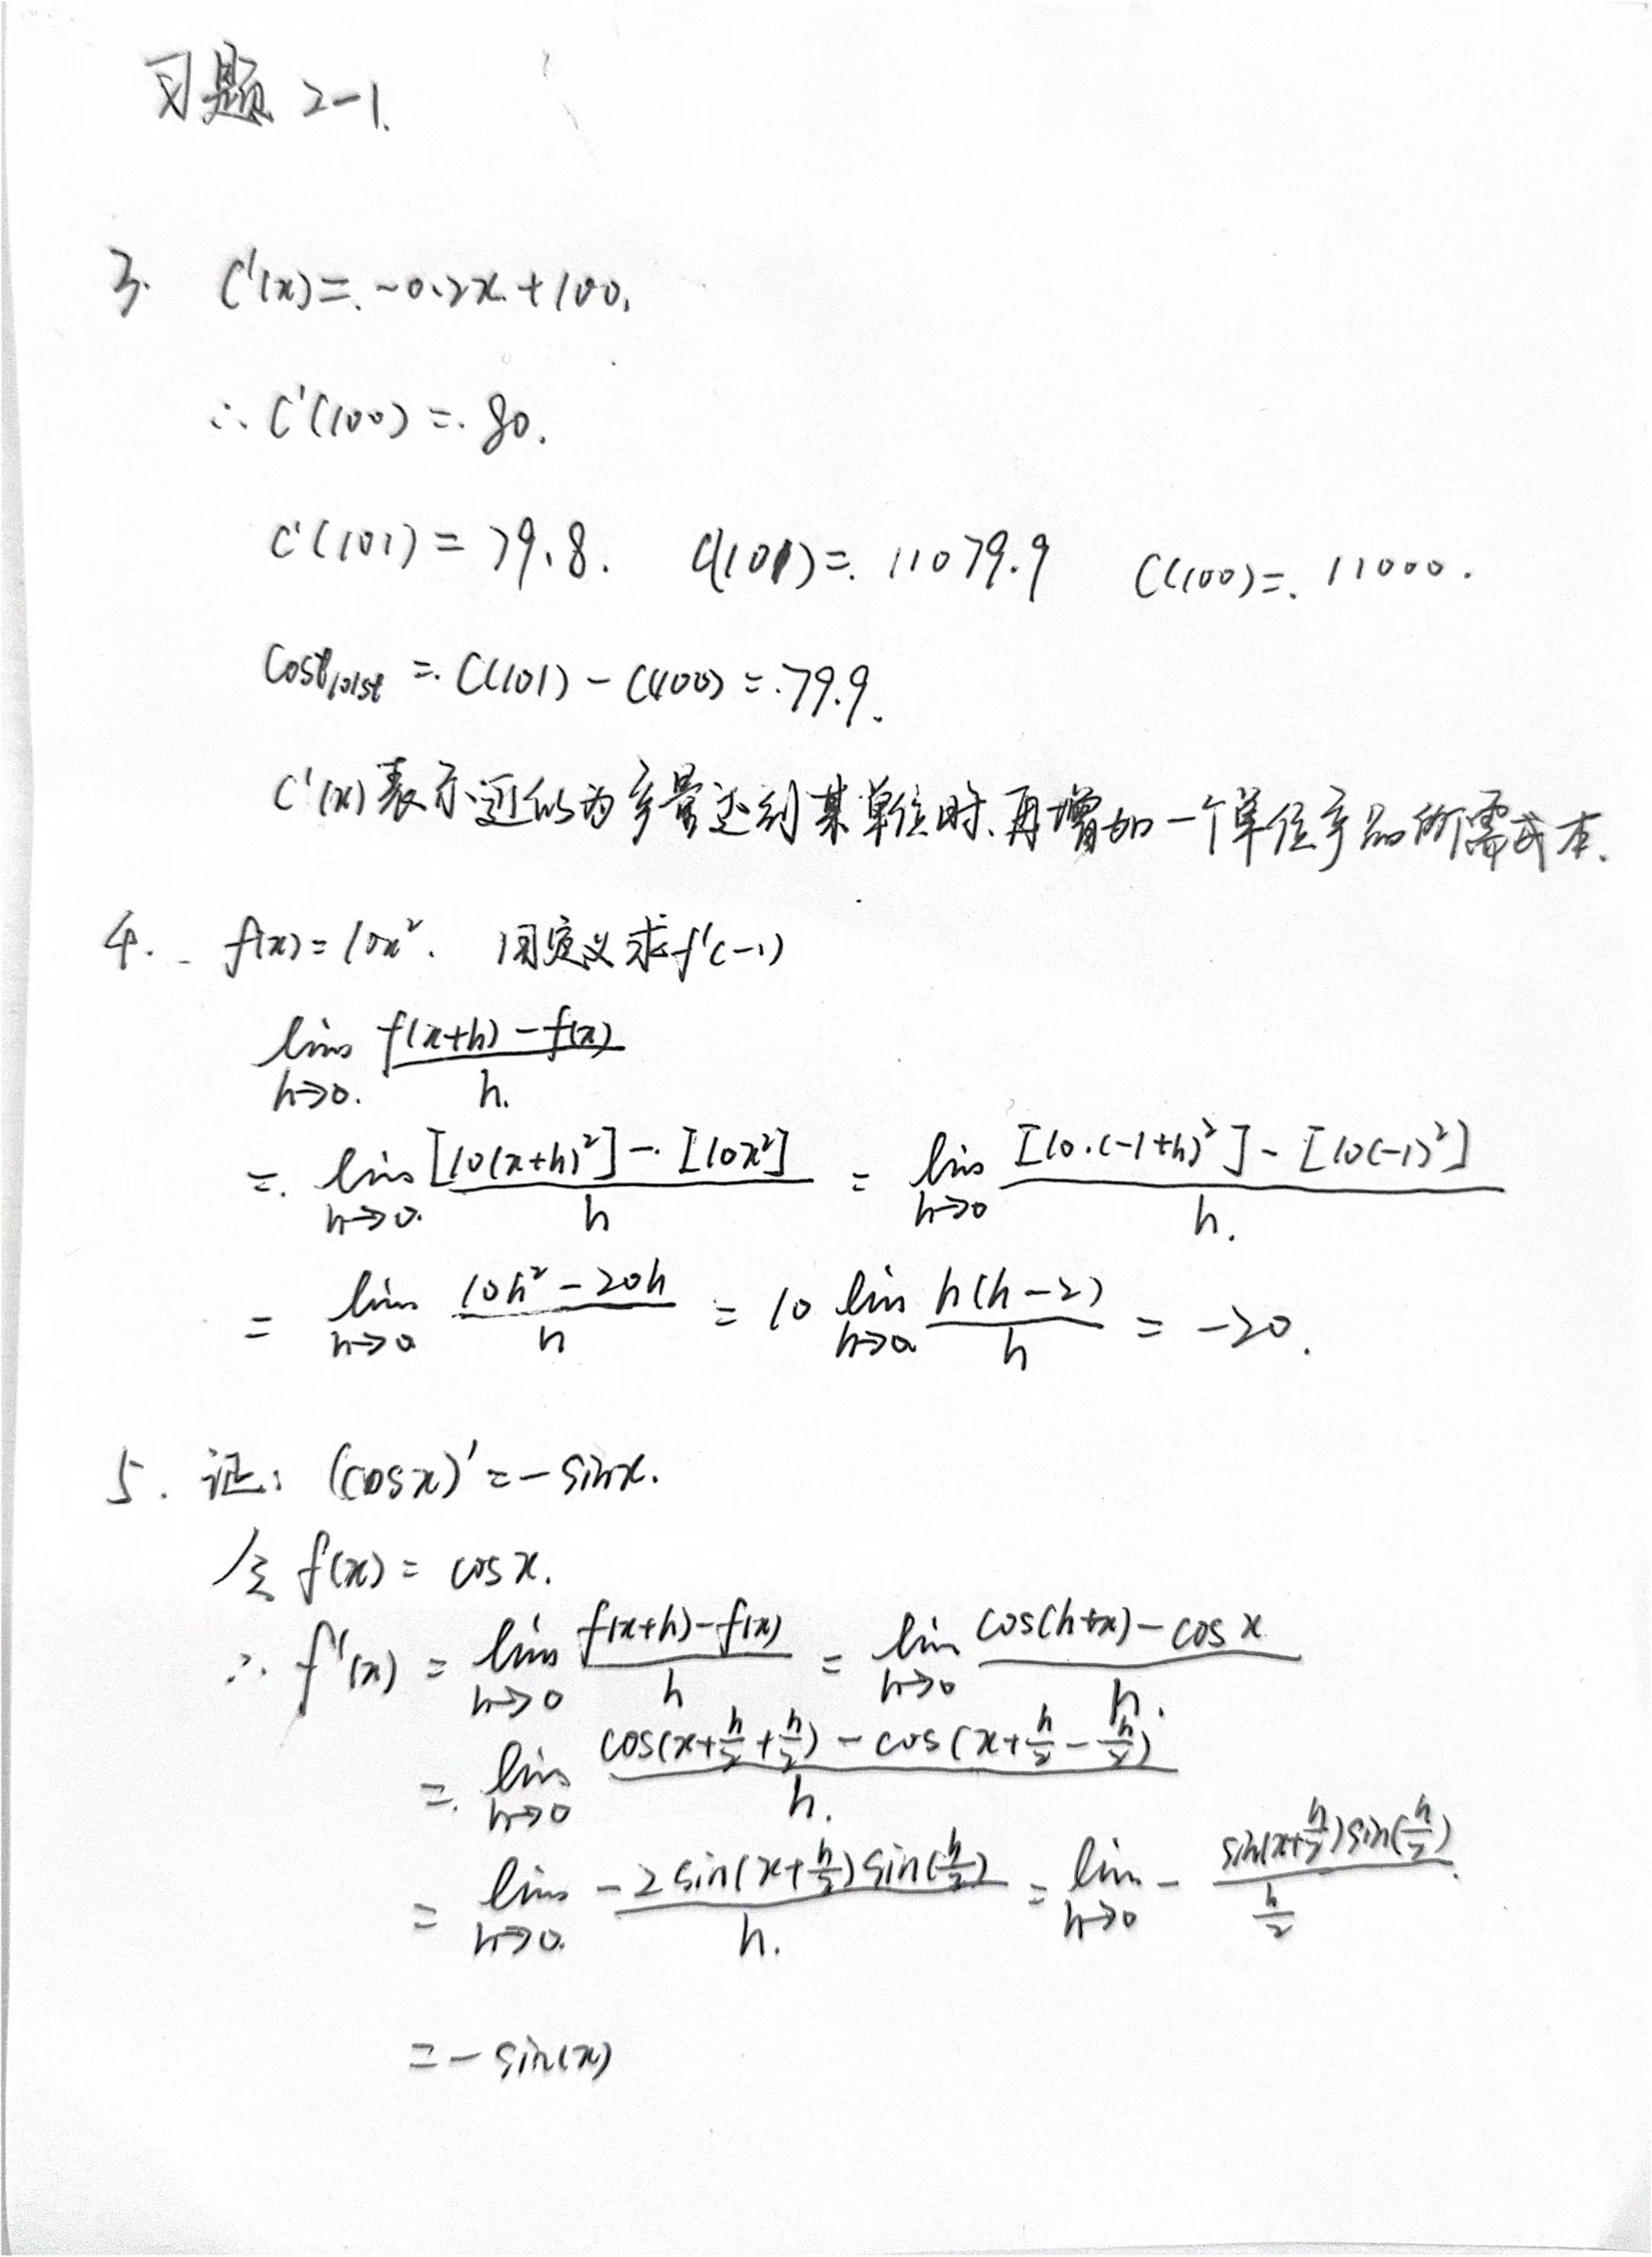 习题 2-1.
3. C'(x)=-0.2x+100.
∴ C'(100)=80.
C'(101)=79.8. C(101)=11079.9 C(100)=11000.
Cost₁₀₁st = C(101)-C(100)=79.9.
C'(x)表示近似为产量达到某单位时、再增加一个单位产品所需成本.
4. f(x)=10x². 用定义求f'(-1)
lim h→0 (f(x+h)-f(x))/h.
= lim h→0 ([10(x+h)²]-[10x²])/h = lim h→0 ([10·(-1+h)²]-[10(-1)²])/h.
= lim h→0 (10h²-20h)/h = 10 lim h→0 (h(h-2))/h = -20.
5. 证: (cosx)'=-sinx.
令 f(x)=cosx.
∴ f'(x) = lim h→0 (f(x+h)-f(x))/h = lim h→0 (cos(h+x)-cosx)/h.
= lim h→0 (cos(x+h/2+h/2)-cos(x+h/2-h/2))/h.
= lim h→0 (-2sin(x+h/2)sin(h/2))/h. = lim h→0 - (sin(x+h/2)sin(h/2))/(h/2).
=-sin(x)